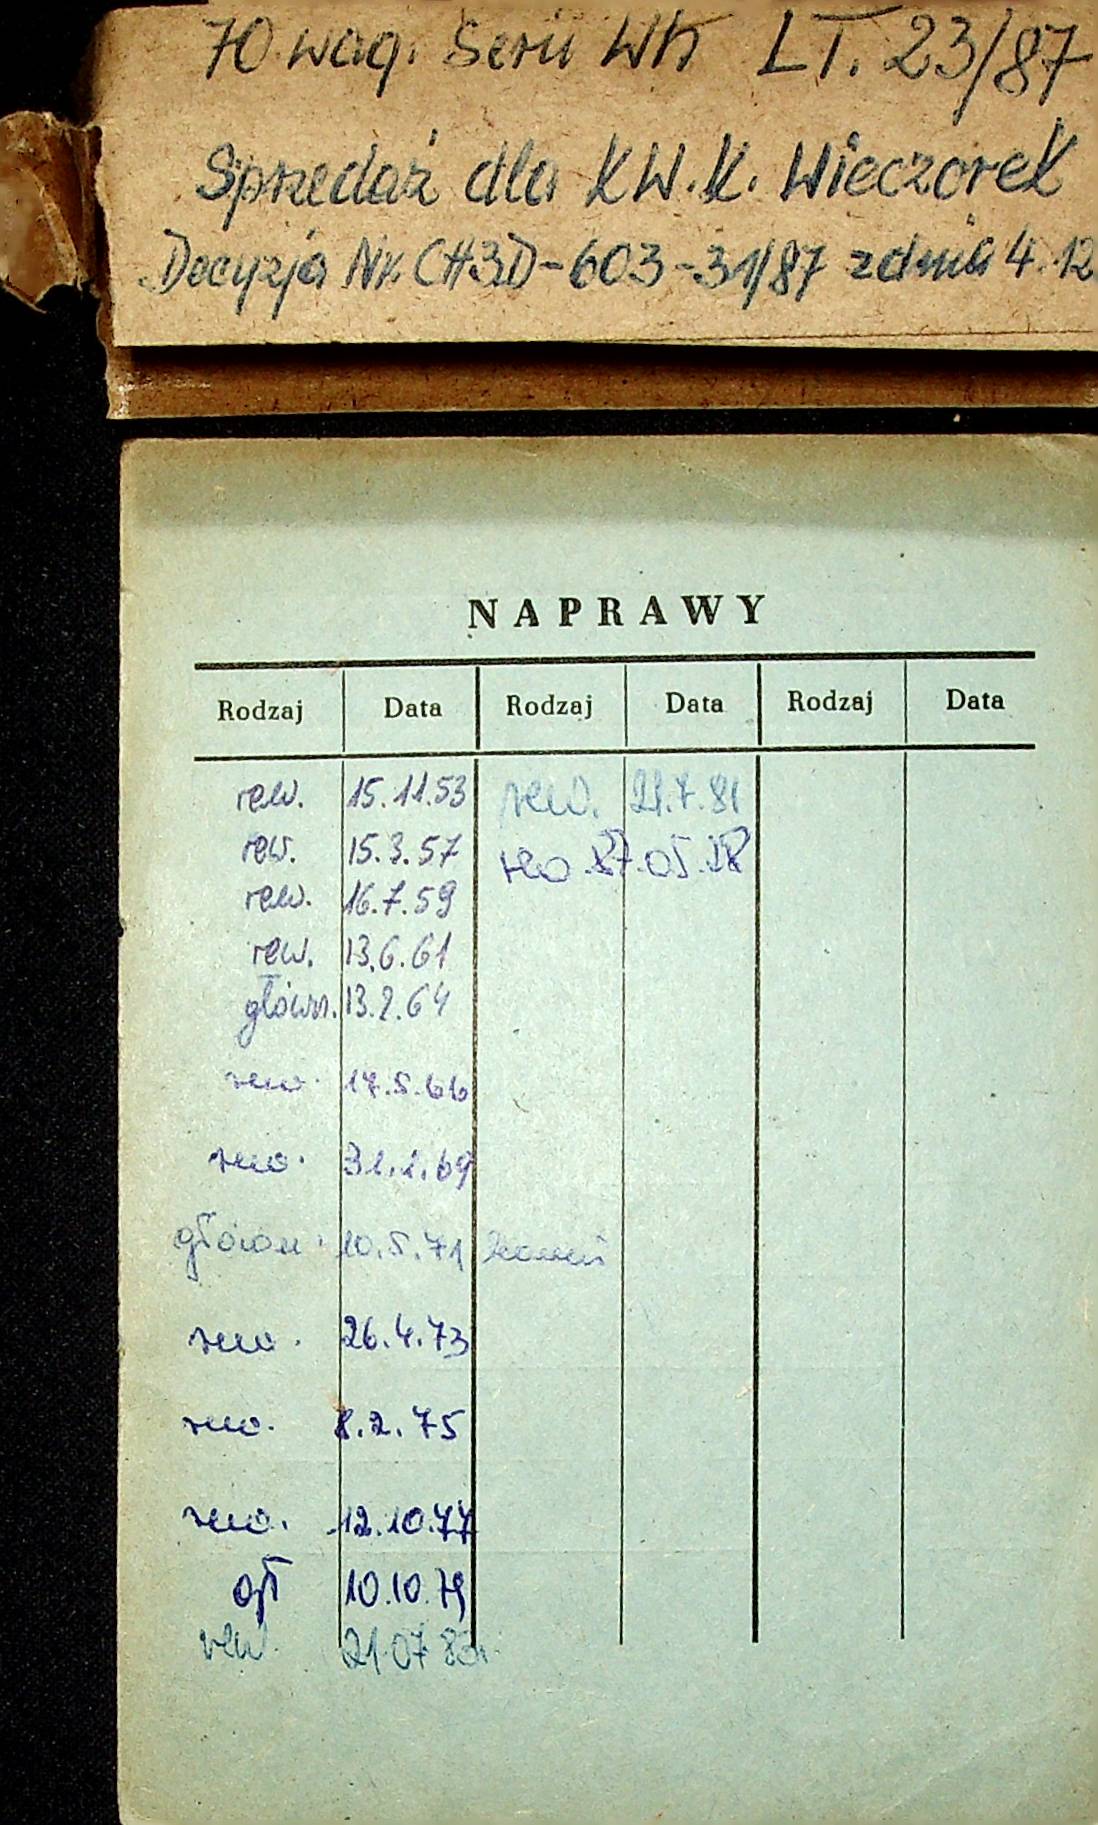 70 wag. Serii Wh LT. 23/87
Sprzedaż dla KW.K. Wieczorek
Decyzja Nr. CH3D-603-31/87 z dnia 4.12
NAPRAWY
Rodzaj Data Rodzaj Data Rodzaj Data
rew. 15.11.53 rew. 21.7.81
rew. 15.3.57 rew.
rew. 16.7.59
rew. 13.6.61
główn. 13.2.64
rew. 17.5.66
rew. 31.1.69
główn. 10.5.71
rew. 26.4.73
rew. 8.2.75
rew. 12.10.77
gł 10.10.79
rew. 21.07.83r.